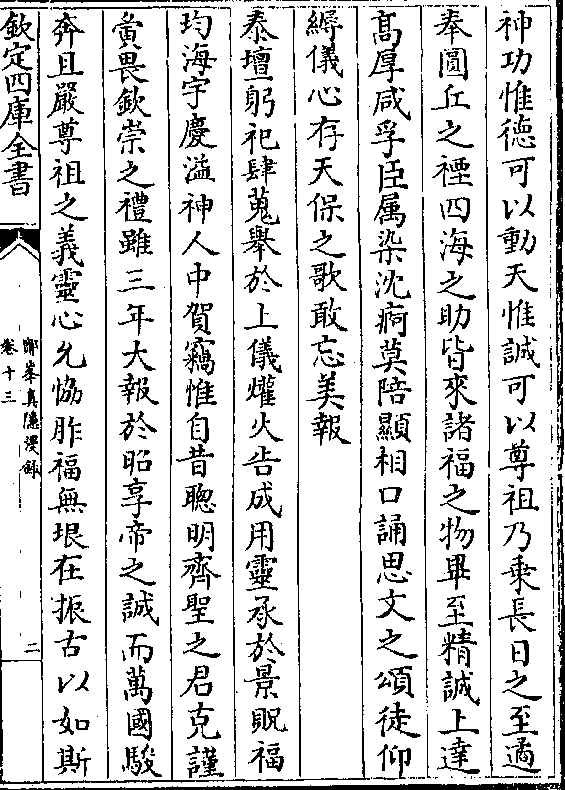 神功惟德可以動天惟誠可以尊祖乃乗長日之至遹
奉圜丘之禋四海之助皆來諸福之物畢至精誠上達
髙厚咸孚臣属染沈痾莫陪顯相口誦思文之頌徒仰
縟儀心存天保之歌敢忘美報
泰壇躬祀肆蒐舉於上儀爟火告成用靈承於景貺福
均海宇慶溢神人中賀竊惟自昔聰明齊聖之君克謹
寅畏欽崇之禮雖三年大報於昭享帝之誠而萬國駿
奔且嚴尊祖之義靈心允恊胙福無垠在振古以如斯
欽定四庫全書
鄮峯真隱漫録
卷十三
二